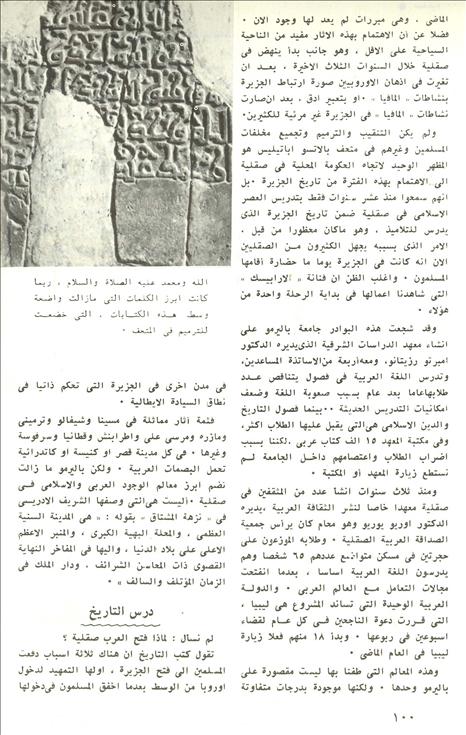 الماضى ، وهى مبررات لم يعد لها وجود الان ٠
فضلا عن أن الاهتمام بهذه الآثار مفيد من الناحية
السياحية على الاقل ، وهو جانب بدأ ينهض فى
صقلية خلال السنوات الثلاث الاخيرة ٠ بعد ان
تغيرت فى أذهان الاوروبيين صورة ارتباط الجزيرة
بنشاطات « المافيا » ٠او بتعبير ادق ، بعد ان صارت
نشاطات « المافيا » فى الجزيرة غير مرئية للكثيرين٠
ولم يكن التنقيب والترميم وتجميع مخلفات
المسلمين وغيرهم فى متحف بالاتسو اباتيليس هو
المظهر الوحيد لاتجاه الحكومة المحلية فى صقلية
الى الاهتمام بهذه الفترة من تاريخ الجزيرة ٠بل
انهم سمحوا منذ عشر سنوات فقط بتدريس العصر
الاسلامى فى صقلية ضمن تاريخ الجزيرة الذى
يدرس للتلاميذ ، وهو ماكان محظورا من قبل ،
الامر الذى بسببه يجهل الكثيرون مـن الصقليين
الان انه كانت فى الجزيرة يوما ما حضارة أقامها
المسلمون ٠ واغلب الظن ان فنانة « الارابيسك »
التى شاهدنا اعمالها فى بداية الرحلة واحدة من
هؤلاء ٠
وقد شجعت هذه البوادر جامعة باليرمو على
انشاء معهد الدراسات الشرقية الذى يديره الدكتور
امبرتو ريزيتانو، ومعه اربعة من الاساتذة المساعدين،
وتدرس اللغة العربية فى فصول يتناقص عـدد
طلابها عاما بعد عام بسبب صعوبة اللغة وضعف
امكانيات التدريس الحديثة ٠٠بينما فصول التاريخ
والدين الاسلامى هى التى يقبل عليها الطلاب اكثر،
وفى مكتبة المعهد ١٥ الف كتاب عربى ٠لكننا بسبب
اضراب الطلاب واعتصامهم داخل الجامعة لـم
نستطع زيارة المعهد أو المكتبة ٠
ومنذ ثلاث سنوات انشأ عدد من المثقفين فى
صقلية معهدا خاصا لنشر الثقافة العربية ،يديره
الدكتور اوريو يوريو وهو محام كان يرأس جمعية
الصداقة العربية الصقلية ٠ وطلابه الموزعون على
حجرتين فى مسكن متواضع عددهم ٦٥ شخصا وهم
يدرسون اللغة العربية اساسا ، بعدما انفتحت
مجالات التعامل مـع العالم العربى ٠ والدولـة
العربية الوحيدة التى تساند المشروع هى ليبيا ،
التى قررت دعوة الناجحين فى كل عام لقضاء
اسبوعين فى ربوعها ٠ وبدأ ١٨ منهم فعلا زيارة
ليبيا فى العام الماضى ٠
وهذه المعالم التى طفنا بها ليست مقصورة على
باليرمو وحدها ٠ ولكنها موجودة بدرجات متفاوتة
الله ومحمد عليه الصلاة والسلام ، ربما
كانت ابرز الكلمات التى مازالت واضحة
وسط هـذه الكتابات ، التى خضعـت
للترميم فى المتحف ٠
فى مدن اخرى فى الجزيرة التى تحكم ذاتيا فى
نطاق السيادة الايطالية ٠
فثمة آثار مماثلة فى مسينا وشيفالو وترمينى
ومازره ومرسى على واطرابنش وقطانيا وسرقوسة
وغيرها ٠ فى كل مدينة قصر او كنيسة او كاتدرائية
تحمل البصمات العربية ٠ ولكن باليرمو ما زالت
تضم ابرز معالم الوجود العربى والاسلامى فـى
صقلية ٠ أليست هى التى وصفها الشريف الادريسى
فى « نزهة المشتاق » بقوله : « هى المدينة السنية
العظمى ، والمحلة البهية الكبرى ، والمنبر الاعظم
الاعلى على بلاد الدنيا ، واليها فى المفاخر النهاية
القصوى ذات المحاسن الشرائف ٠ ودار الملك فى
الزمان المؤتلف والسالف » ٠
درس التاريخ
لم نسأل : لماذا فتح العرب صقلية ؟
تقول كتب التاريخ ان هناك ثلاثة اسباب دفعت
المسلمين الى فتح الجزيرة ، اولها التمهيد لدخول
اوروبا من الوسط بعدما اخفق المسلمون فى دخولها
١٠٠